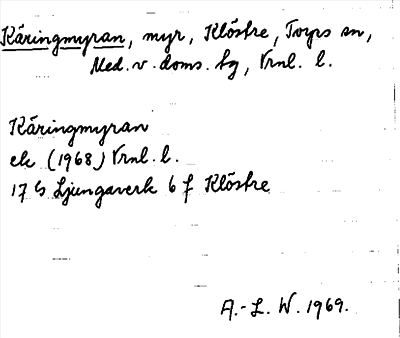 Käringmyran, myr, Klöstre, Torps sn,
Med. v. doms. tg, Vrnl. l.
Käringmyran
ek (1968) Vrnl. l.
17 G Ljungaverk 6 f Klöstre
A.-L. W. 1969.